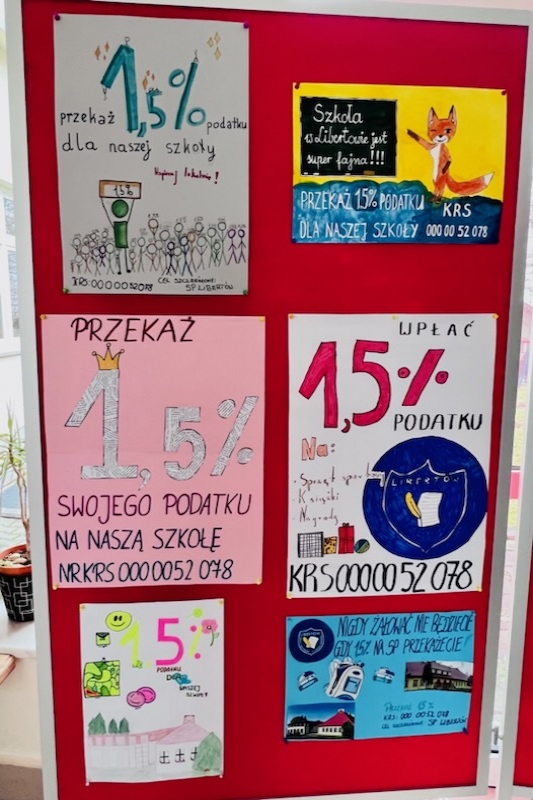 1,5%
przekaż podatku
dla naszej szkoły
Wspieraj lokalnie!
1.5%
KRS: 0000052078
CEL SZCZEGÓŁOWY:
SP LIBERTÓW
Szkoła
w Libertowie jest
super fajna!!!
PRZEKAŻ 1.5% PODATKU
DLA NASZEJ SZKOŁY
KRS
000 00 52 078
PRZEKAŻ
1,5%
SWOJEGO PODATKU
NA NASZĄ SZKOŁĘ
NR KRS 0000052 078
WPŁAĆ
1,5%
PODATKU
Na:
• Sprzęt sportowy
• Książki
• Nagrody
LIBERTÓW
KRS 00000 52 078
1,5%
PODATKU
DLA
NASZEJ
SZKOŁY
NIGDY ŻAŁOWAĆ NIE BĘDZIECIE
GDY 1.5% NA SP PRZEKAŻECIE!
Przekaż 1.5%
KRS: 000 00 52 078
CEL SZCZEGÓŁOWY SP LIBERTÓW